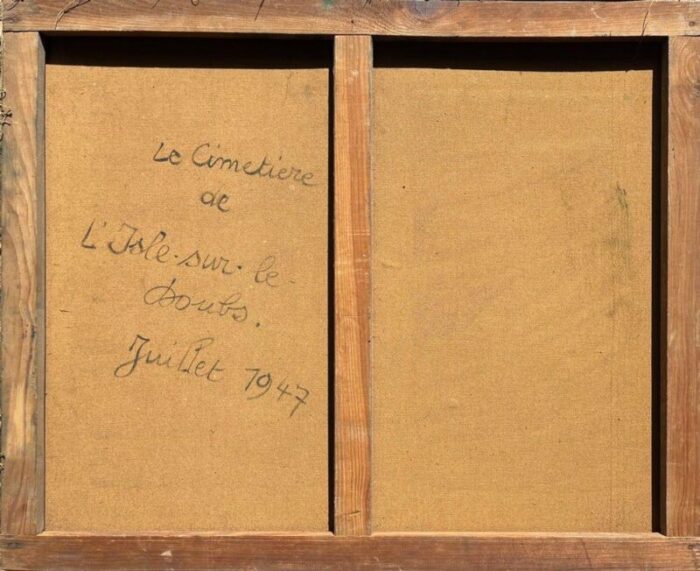 Le Cimetiere
de
L'Isle-sur-le-
Doubs.
Juillet 1947